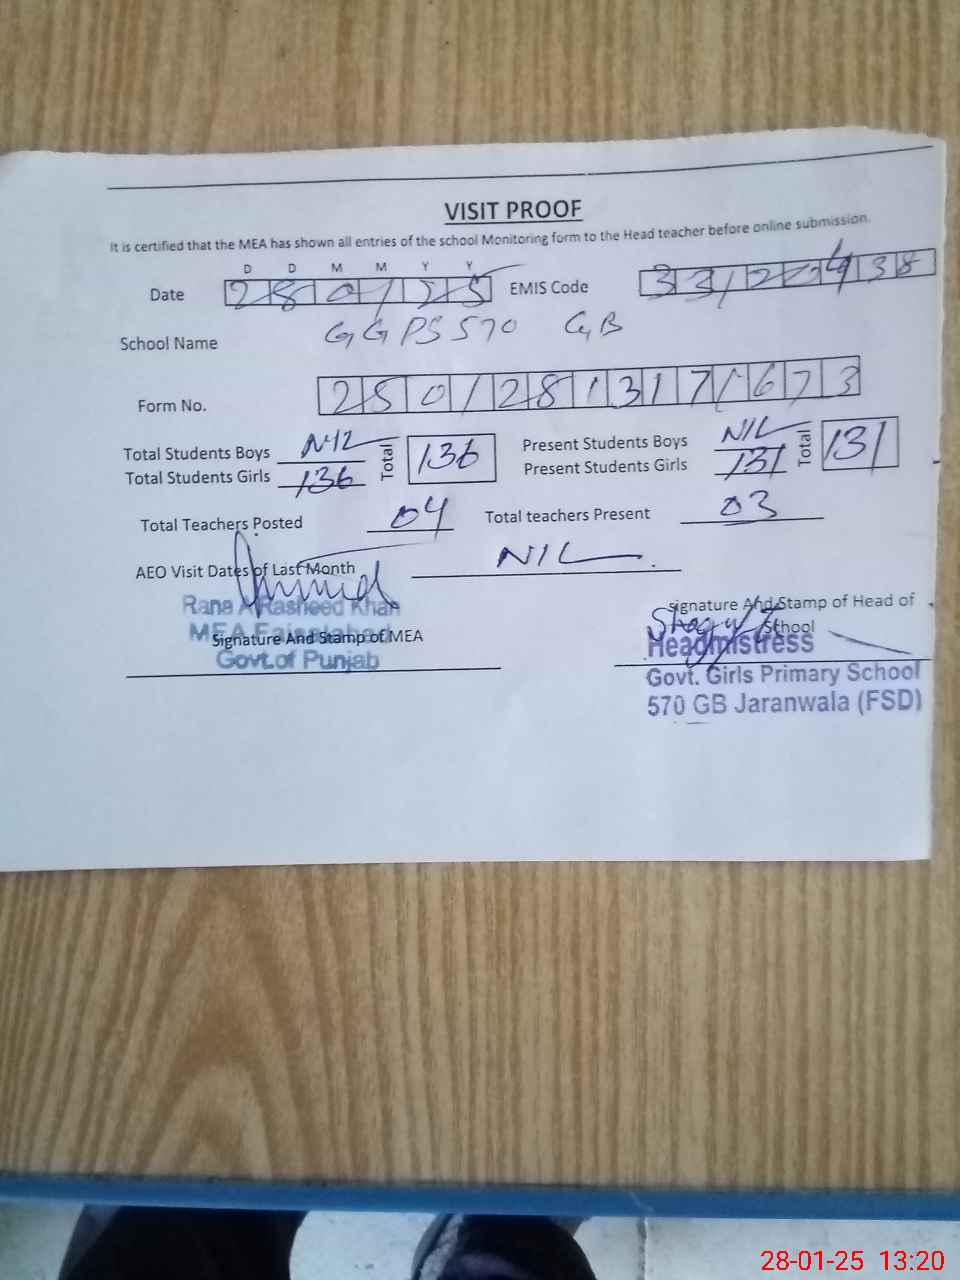 VISIT PROOF
It is certified that the MEA has shown all entries of the school Monitoring form to the Head teacher before online submission.
D D M M Y Y
Date 280125 EMIS Code 33120438
School Name GGPS 570 GB
Form No. 25012813171673
Total Students Boys NIL Total 136 Present Students Boys NIL Total 131
Total Students Girls 136 Present Students Girls 131
Total Teachers Posted 04 Total teachers Present 03
AEO Visit Dates of Last Month NIL
Rana A Rasheed Khan
MEA Faisalabad
Signature And Stamp of MEA
Govt.of Punjab
Signature And Stamp of Head of School
Headmistress
Govt. Girls Primary School
570 GB Jaranwala (FSD)
28-01-25 13:20